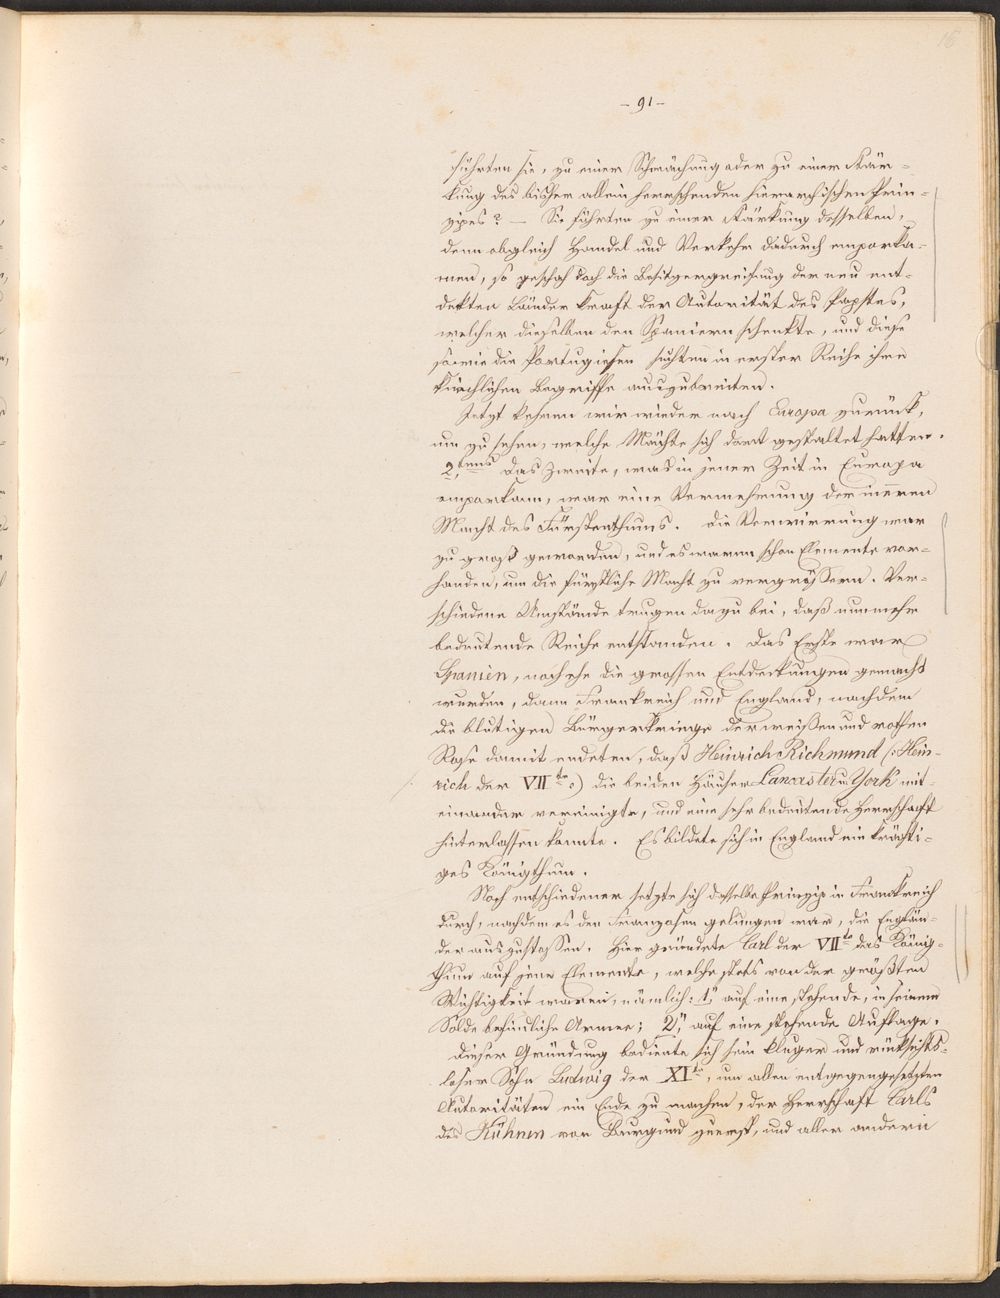 16
- 91 -
führten sie, zu einer Schwächung oder zu einer Stär-
kung des bisher allein herrschenden hierarchischen Prin-
zipes? — Sie führten zu einer Stärkung desselben,
denn obgleich Handel und Verkehr dadurch emporka-
men, so geschah doch die Besitzergreifung der neu ent-
dekten Länder kraft der Autorität des Papstes,
welcher dieselben den Spaniern schenkte, und diese
sowie die Portugiesen suchten in erster Reihe ihre
kirchlichen Begriffe auszubreiten.
Jetzt kehren wir wieder nach Europa zurück,
um zu sehen, welche Mächte sich dort gestaltet hatten.
2tens Das Zweite, was in jener Zeit in Europa
emporkam, war eine Vermehrung der inneren
Macht des Fürstenthums. Die Verwirrung war
zu groß geworden, und es waren schon Elemente vor-
handen, um die fürstliche Macht zu vergrößern. Ver-
schiedene Umstände trugen dazu bei, daß nunmehr
bedeutende Reiche entstanden. Das Erste war
Spanien, noch ehe die grossen Entdeckungen gemacht
wurden, dann Frankreich und England, nachdem
die blutigen Bürgerkriege der weißen und rothen
Rose damit endeten, daß Heinrich Richmund (: Hein-
rich der VIIte :) die beiden Häuser Lancaster u. York mit-
einander vereinigte, und eine sehr bedeutende Herrschaft
hinterlassen konnte. Es bildete sich in England ein kräfti-
ges Königthum.
Noch entschiedener setzte sich dasselbe Prinzip in Frankreich
durch, nachdem es den Franzosen gelungen war, die Englän-
der auszustossen. Hier gründete Carl der VIIte das König-
thum auf jene Elemente, welche stets von der größten
Wichtigkeit waren, nämlich: 1, auf eine stehende, in seinem
Solde befindliche Armee; 2, auf eine stehende Auflage.
Dieser Gründung bediente sich sein kluger und rücksichts-
loser Sohn Ludwig der XIte, um allen entgegengesetzten
Autoritäten ein Ende zu machen, der Herrschaft Carls
des Kühnen von Burgund zuerst, und aller andern